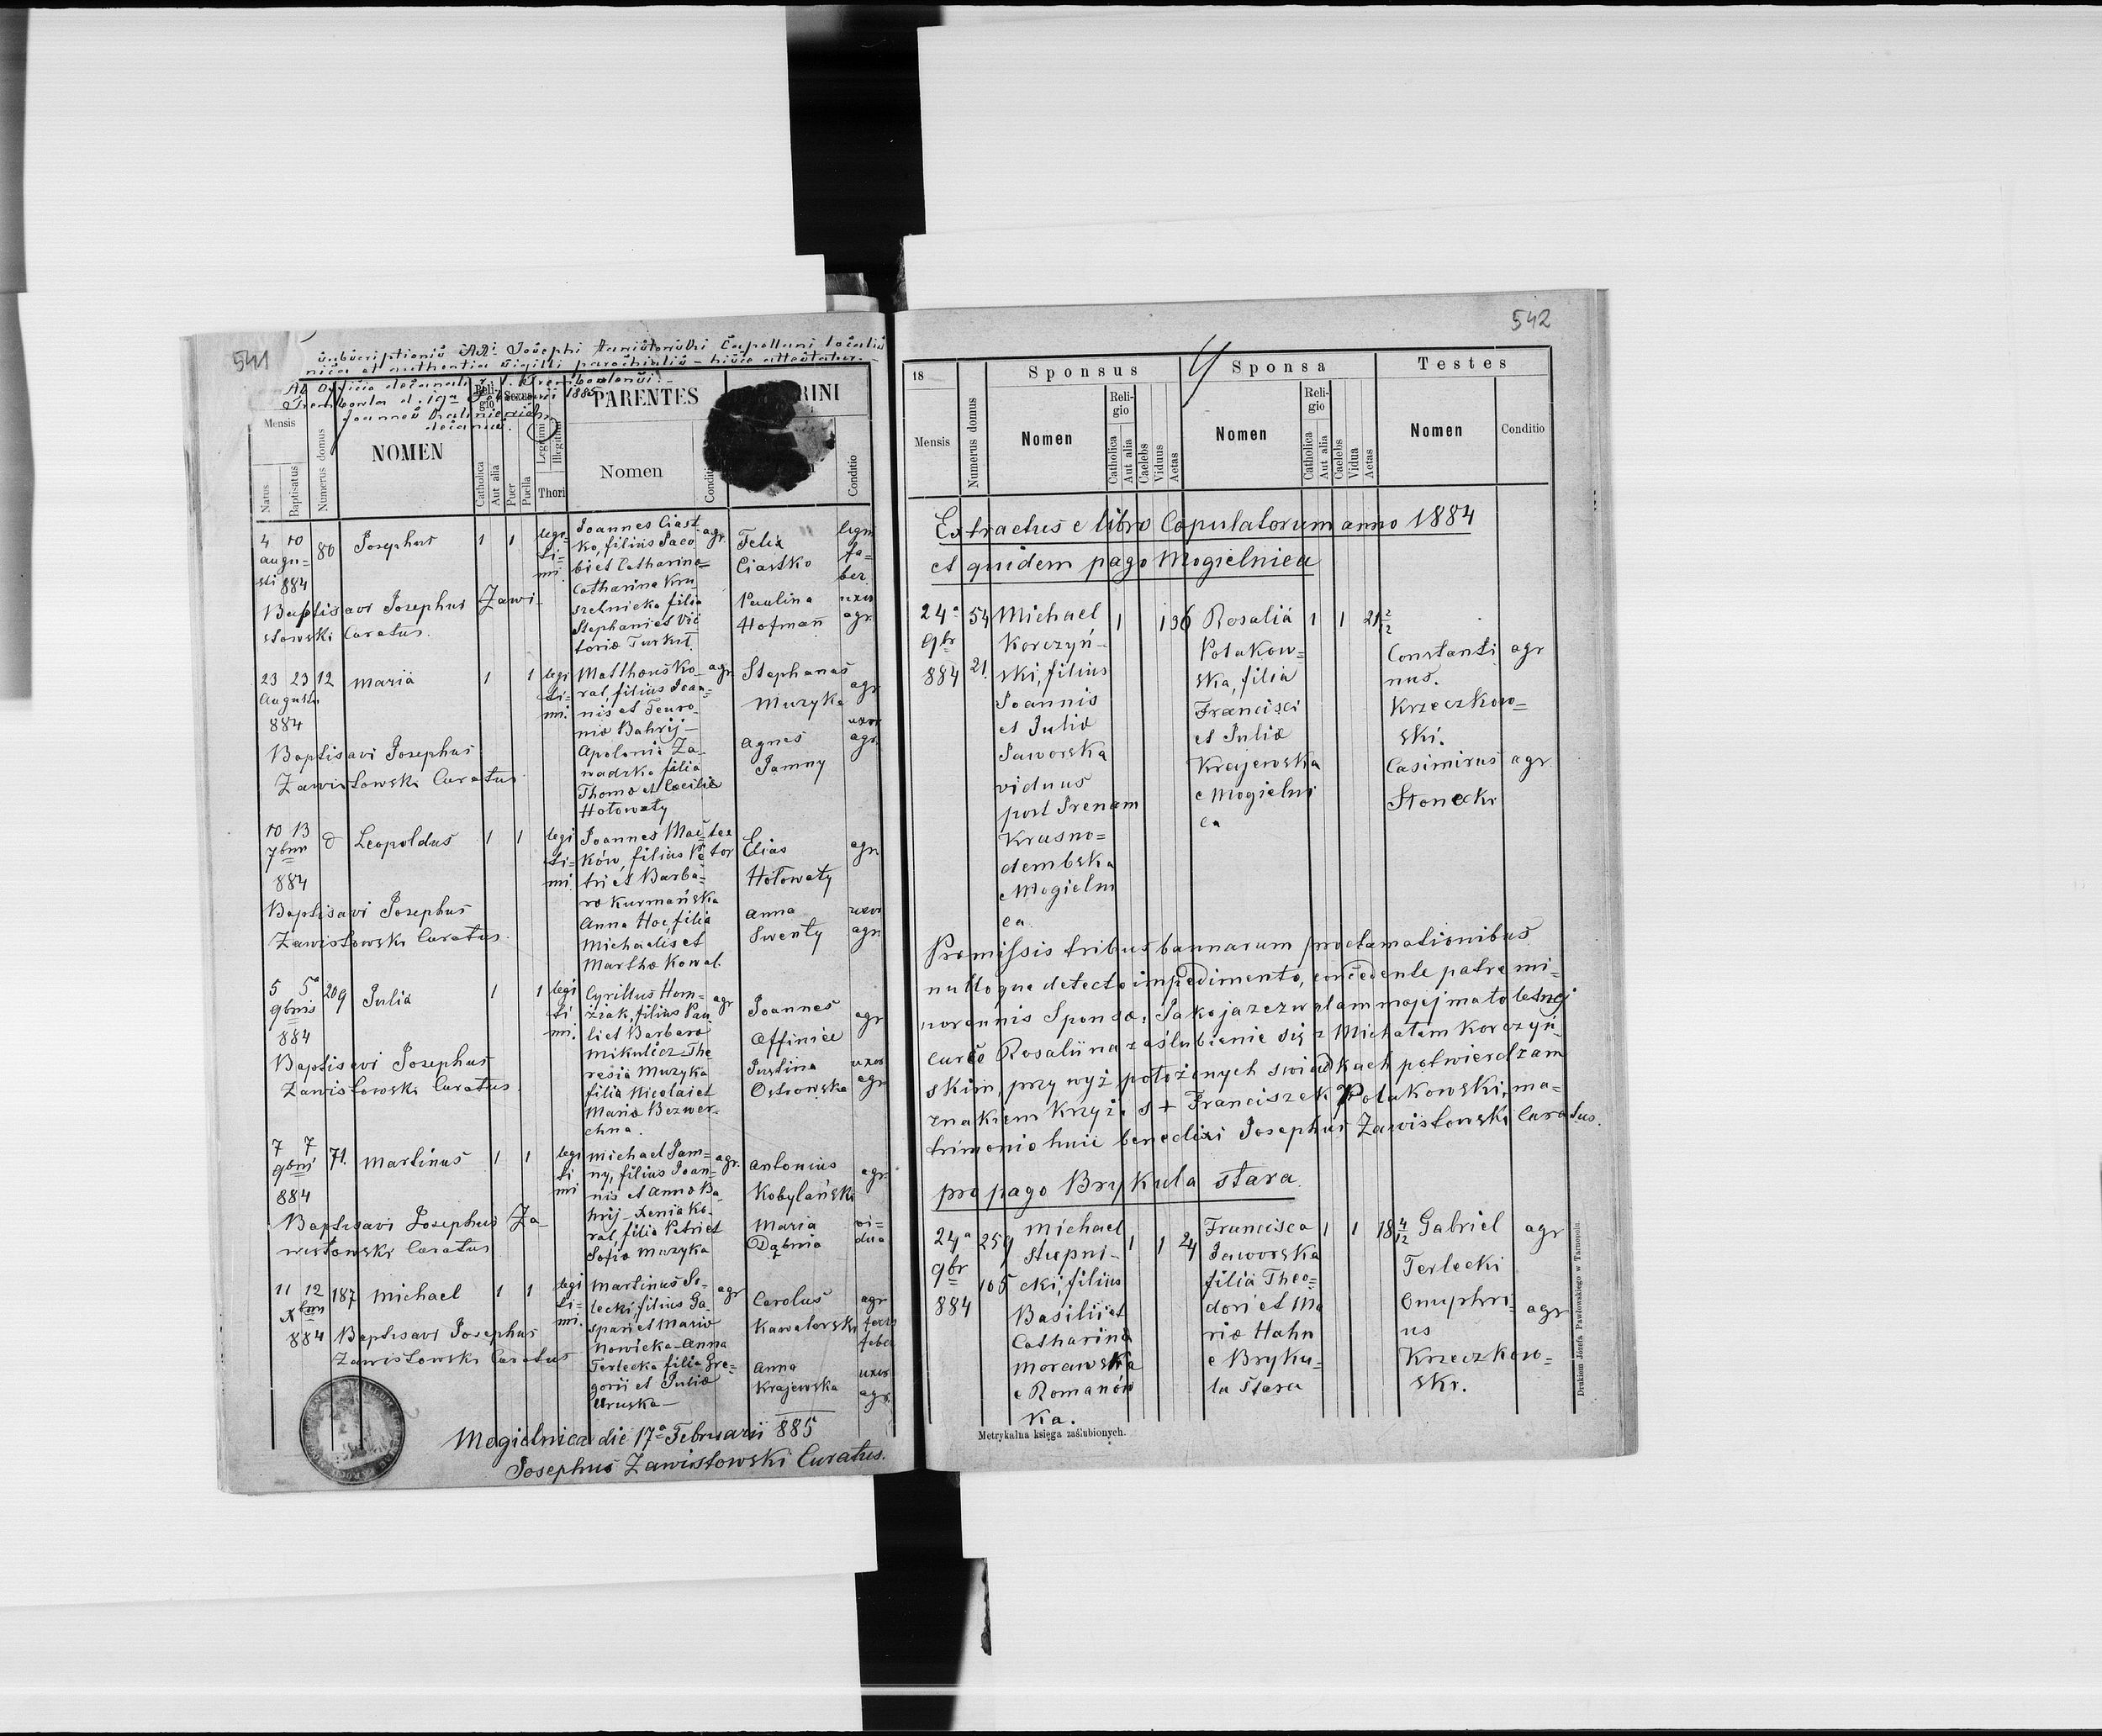 541
subscriptionis
Josephi
Capellani localis
et authentia sigilli parochialis
Ab Officio decanali
Joannes
decanus.
Mensis
Natus
Baptisatus
Numerus domus
NOMEN
Religio
Catholica
Aut alia
Sexus
Puer
Puella
Legitimi
Illegitimi
Thori
PARENTES
Nomen
Conditio
RINI
Conditio
4 10
augu-
sti 884
80
Josephus
1 1
legi-
ti-
mi.
Joannes Ciast
ko, filius Jaco
bi et Catharina=
Catharina Kru
szelnicka filia
Stephani et Vic
toriæ Turkot.
agr.
Felix
Ciastko
Paulina
Hofman
lign
fa=
ber.
uxor
agr.
Baptisavi Josephus Zawi-
stowski Curatus.
23 23
Augusti
884
12
Maria
1 1
legi
ti-
mi.
Matthæus Ko-
ral, filius Joan=
nis et Teuro-
niæ Bahrij-
Apolonia Za-
wadzka filia
Thomæ et Cæciliæ
Hołowaty
agr
Stephanus
Muzyka
Agnes
Jamny
agr
uxor
agr.
Baptisavi Josephus
Zawistowski Curatus
10 13
7bris
884
Leopoldus
1 1
legi
ti=
mi.
Joannes Mać-
ków, filius Pe
tri et Barba=
ræ Kurmańska
Anna Hoc, filia
Michaelis et
Marthæ Kowal.
tex
tor
Elias
Hołowaty
Anna
Swenty
agr
uxor
agr.
Baptisavi Josephus
Zawistowski Curatus.
5 5
9bris
884
209
Julia
1 1
legi
ti
mi.
Cyrillus Hom=
ziak, filius Pau
li et Barbaræ
Mikulicz-The
resia Muzyka
filia Nicolai et
Mariæ Bezwer-
chna.
agr
Joannes
Offinice
Justina
Ostrowska
agr
uxor
agr
Baptisavi Josephus
Zawistowski Curatus.
7 7
9bris
884
71.
Martinus
1 1
legi
ti
mi
Michael Jam=
ny, filius Joan=
nis et Annæ Ba
hrij-Xenia Ko-
ral, filia Petri et
Sofiæ Muzyka
agr.
Antonius
Kobylański
Maria
Dąbnia
agr
vi=
dua
Baptisavi Josephus Za-
wistowski Curatus
11 12
Xbris
884
187
Michael
1 1
legi
ti-
mi.
Martinus So-
lecki filius Ga-
spari et Mariæ
Nowicka-Anna
Terlecka filia Gre=
gorii et Juliæ
Uruska-
agr
Carolus
Kawalorski
Anna
Krajewska
agr
uxor
agr.
Baptisavi Josephus
Zawistowski Curatus
Mogielnica die 17ª Februarii 885
Josephus Zawistowski Curatus.
542
18
Sponsus
Sponsa
Testes
Mensis
Numerus domus
Nomen
Religio
Catholica
Aut alia
Caelebs
Viduus
Aetas
Nomen
Religio
Catholica
Aut alia
Caelebs
Vidua
Aetas
Nomen
Conditio
Extractus e libro Copulatorum anno 1884
et quidem pago Mogielnica
24ª
9br
884
54
21.
Michael
Korczyń-
ski, filius
Joannis
et Juliæ
Jaworska
viduus
post Irenam
Krasno=
dembska
e Mogielni
ca.
1 1 36
Rosalia
Polakow=
ska, filia
Francisci
et Juliæ
Krajewska
e Mogielni
ca
1 1 21 2/12
Constanti
nus.
Krzeczkow=
ski.
Casimirus
Słonecki
agr
agr
Præmissis tribus bannarum proclamationibus
nulloque detecto impedimento, concedente patre mi-
norennis Sponsæ: Jako ja zezwalam mojej małoletnej
curce Rosalii na zaślubienie się z Michałem Korczyń-
skim, przy wyż położonych swiadkach potwierdzam
znakiem Krzyż. s + Franciszek Polakowski, ma-
trimonio huic benedixi Josephus Zawistowski Curatus.
pro pago Brykula stara.
24ª
9br
884
259
105
Michael
Stupni-
cki, filius
Basilii et
Catharina
Morawska
e Romanów
ka.
1 1 24
Francisca
Jaworska
filia Theo=
dori et Ma
riæ Hahn
e Bryku=
la stara
1 1 18 4/12
Gabriel
Terlecki
Onuphri-
us
Krzeczkow=
ski.
agr
agr
Metrykalna księga zaślubionych.
Drukiem Józefa Pawłowskiego w Tarnopolu.